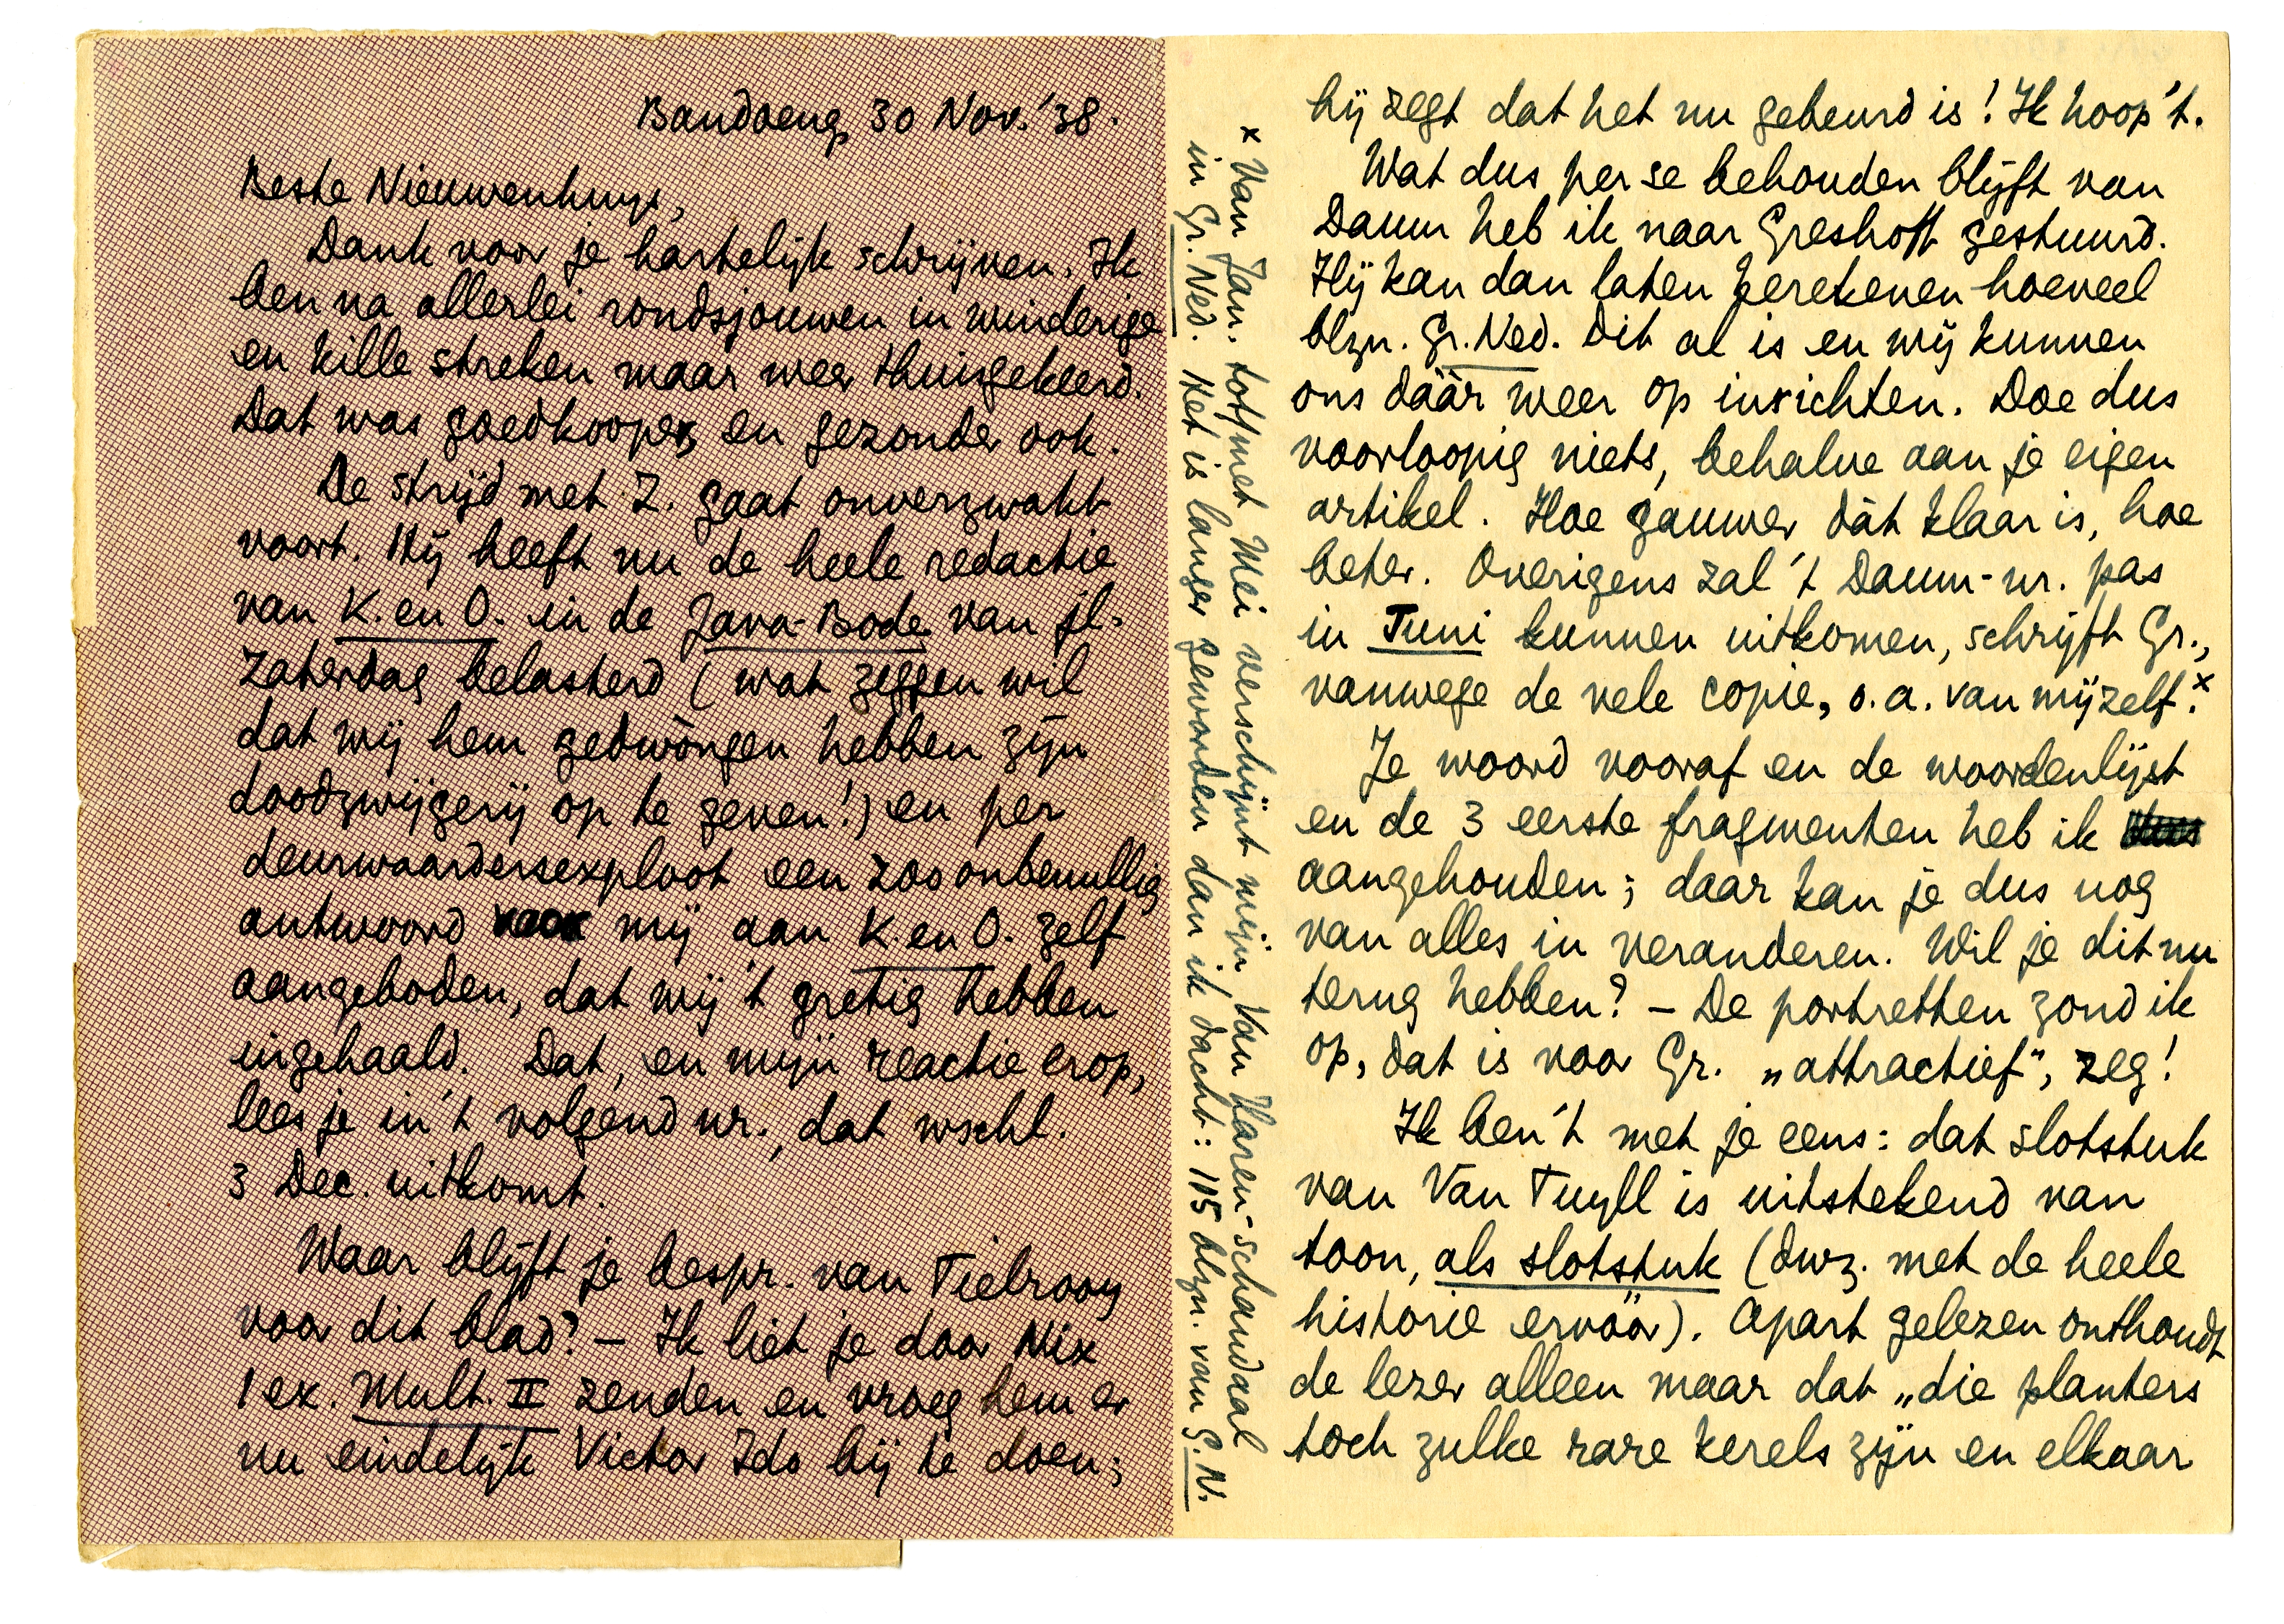 Bandoeng, 30 Nov. '38.
Beste Nieuwenhuys,
Dank voor je hartelijk schrijven. Ik
ben na allerlei rondsjouwen in winderige
en kille streken maar weer thuisgekeerd.
Dat was goedkooper, en gezonder ook.
De strijd met Z. gaat onverzwakt
voort. Hij heeft nu de heele redactie
van K. en O. in de Java-Bode van jl.
Zaterdag belasterd (wat zeggen wil
dat wij hem gedwòngen hebben zijn
doodzwijgerij op te geven!) en per
deurwaardersexploot een zoo onbenullig
antwoord mij aan K. en O. zelf
aangeboden, dat wij 't gretig hebben
ingehaald. Dat, en mijn reactie erop,
lees je in 't volgend nr., dat wschl.
3 Dec. uitkomt.
Waar blijft je bespr. van Tielrooy
voor dit blad? – Ik liet je door Nix
1 ex. Mult. II zenden en vroeg hem er
nu eindelijk Victor Ido bij te doen;
hij zegt dat het nu gebeurd is! Ik hoop 't.
Wat dus per se behouden blijft van
Daum heb ik naar Greshoff gestuurd.
Hij kan dan laten berekenen hoeveel
blzn. Gr. Ned. dit al is en wij kunnen
ons dáár weer op inrichten. Doe dus
voorloopig niets, behalve aan je eigen
artikel. Hoe gauwer dàt klaar is, hoe
beter. Overigens zal 't Daum-nr. pas
in Juni kunnen uitkomen, schrijft Gr.,
vanwege de vele copie, o.a. van mijzelf.x
Je woord vooraf en de woordenlijst
en de 3 eerste fragmenten heb ik
aangehouden; daar kan je dus nog
van alles in veranderen. Wil je dit nu
terug hebben? – De portretten zond ik
op, dat is voor Gr. „attractief", zeg!
Ik ben 't met je eens: dat slotstuk
van Van Tuyll is uitstekend van
toon, als slotstuk (dwz. met de heele
historie ervóór). Apart gelezen onthoudt
de lezer alleen maar dat „die planters
toch zulke rare kerels zijn en elkaar
x Van Jan. tot/met Mei verschijnt mijn Van Haren-schandaal
in Gr. Ned. Het is langer geworden dan ik dacht: 115 blzn. van G.N.